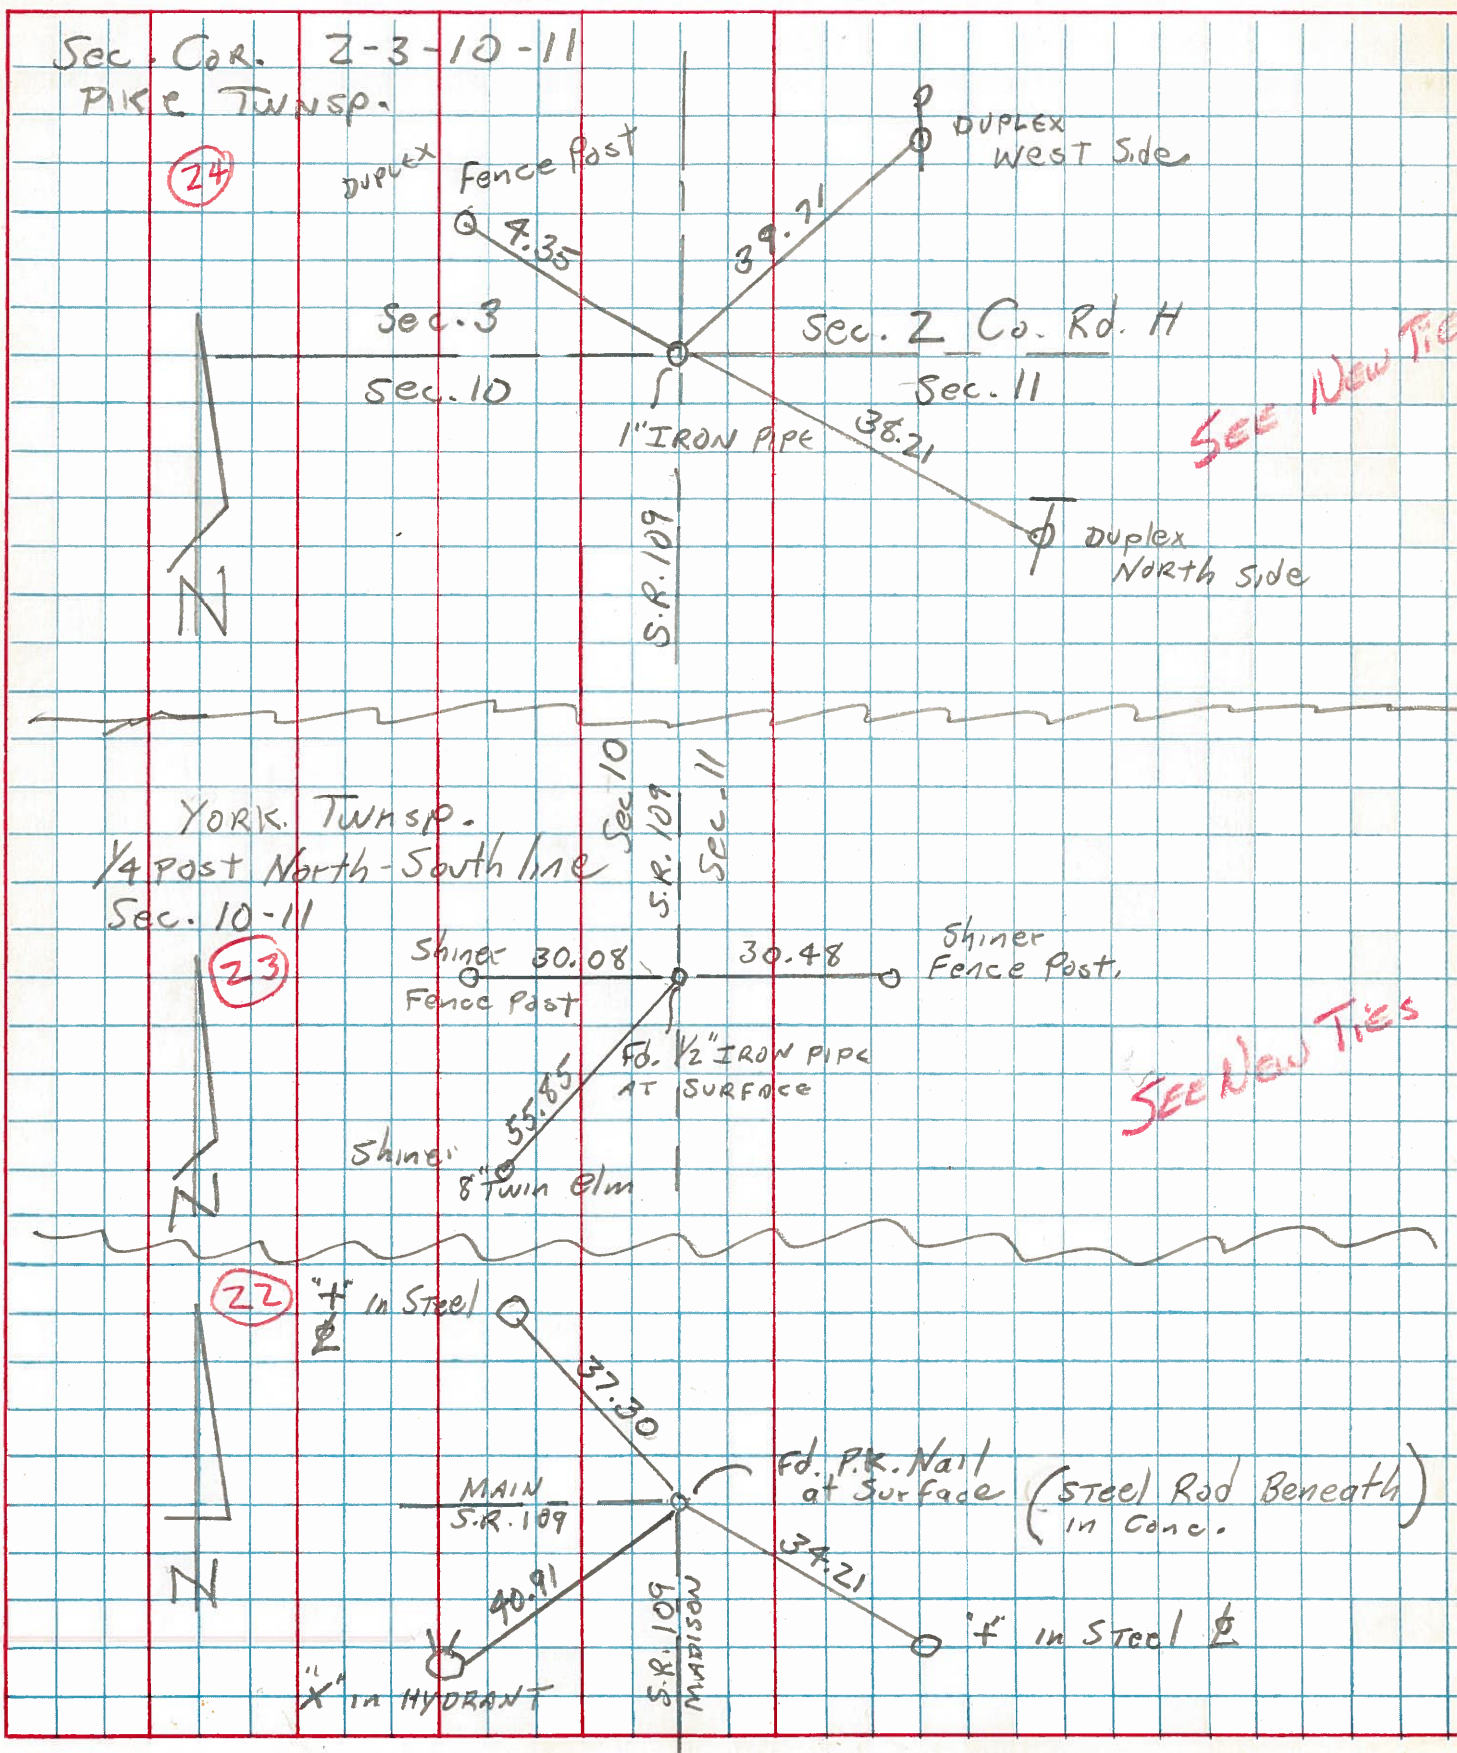 Sec. Cor. 2-3-10-11
Pike Twnsp.
24
Duplex Fence Post
4.35
39.71
P
Duplex
West Side
Sec. 3
Sec. 2 Co. Rd. H
Sec. 10
Sec. 11
1" Iron Pipe
38.21
S.R. 109
Duplex
North Side
See New Tie
N
York. Twnsp.
1/4 post North-South line
Sec. 10-11
Sec 10
S.R. 109
Sec. 11
23
Shiner
Fence Post
30.08
30.48
Shiner
Fence Post.
Fd. 1/2" Iron Pipe
At Surface
55.85
Shiner
8" Twin Elm
See New Ties
N
22
"+" in Steel
℄
37.30
Main
S.R. 109
Fd. P.K. Nail
at Surface
(Steel Rod Beneath)
in Conc.
34.21
40.91
S.R. 109
Madison
"+" in Steel ℄
"X" in Hydrant
N